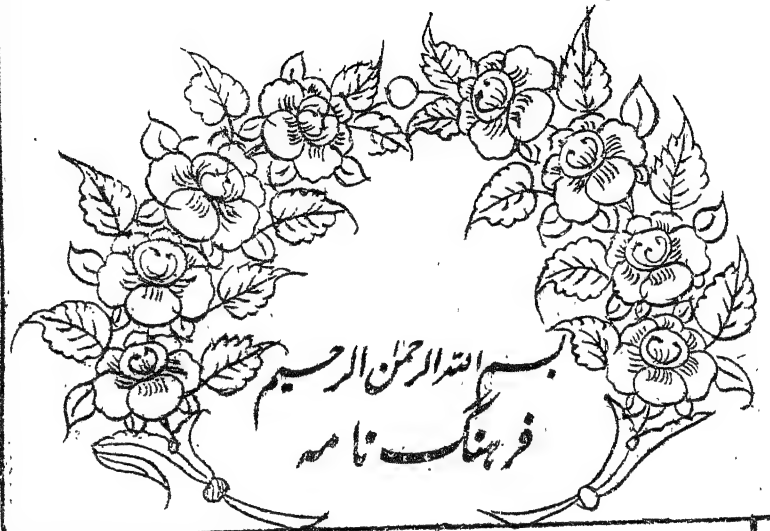 بسم الله الرحمٰن الرحیم
فرہنگ نامہ